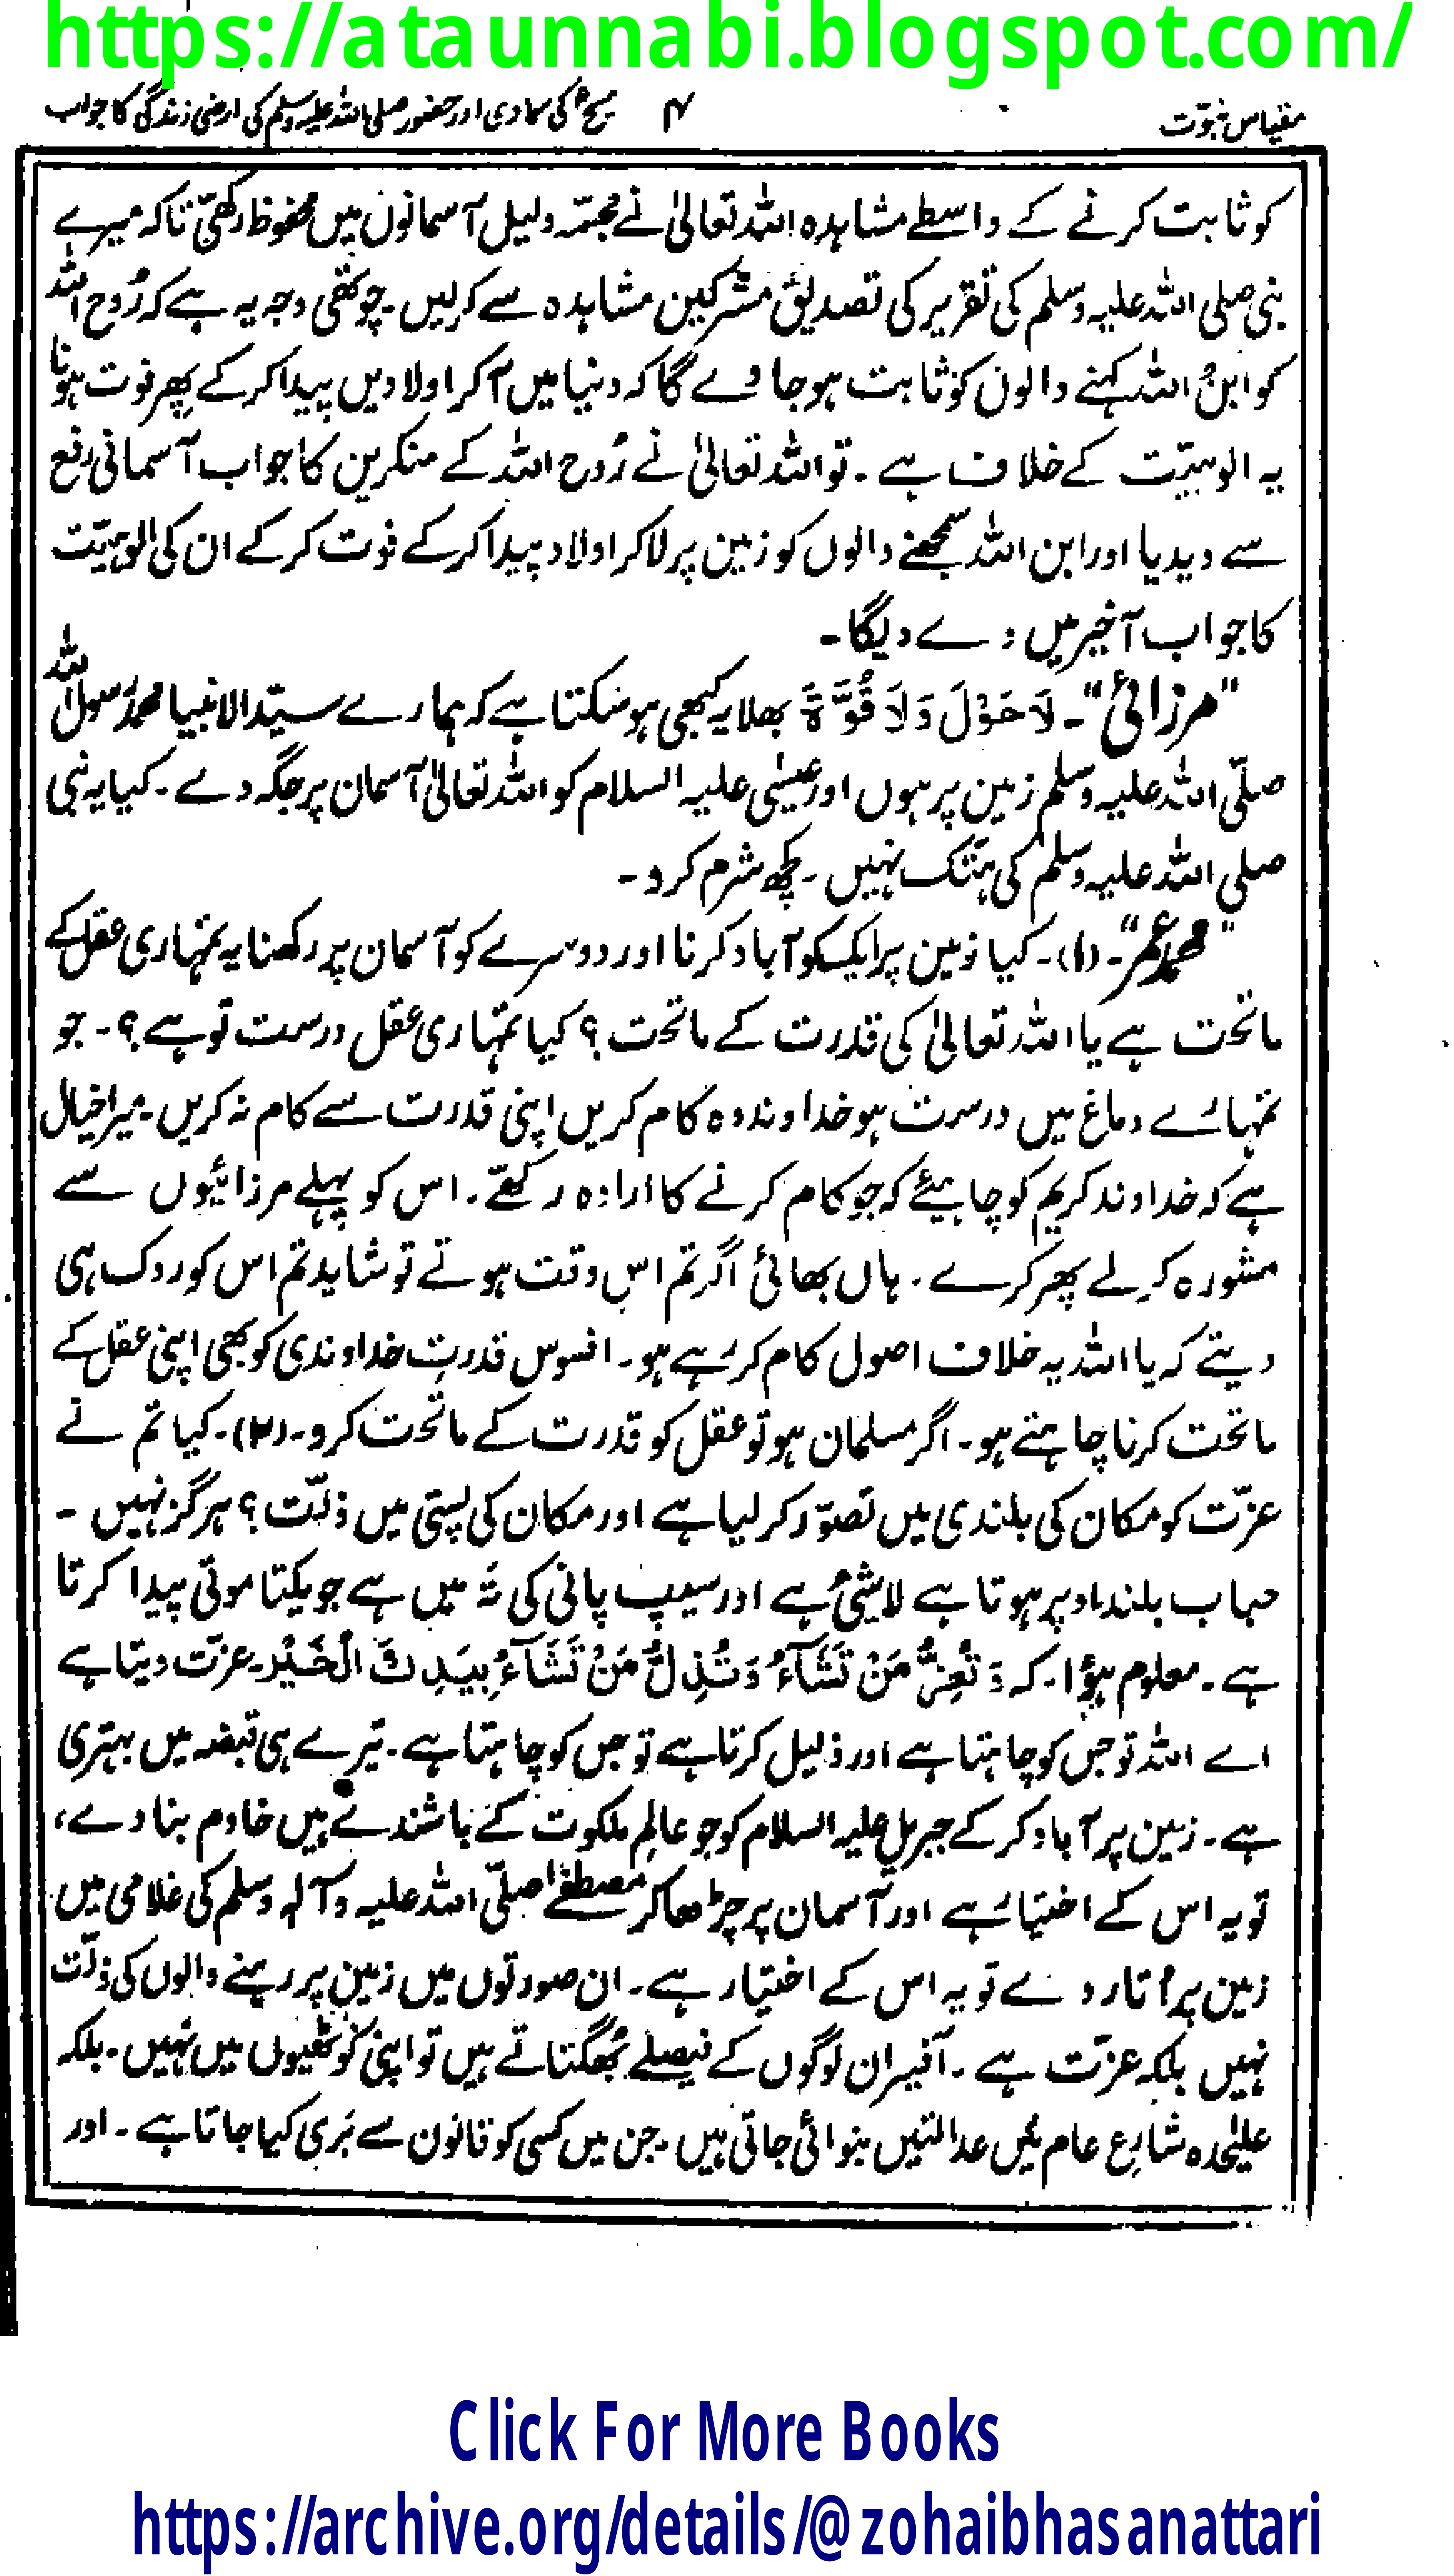 https://ataunnabi.blogspot.com/
مقیاس نبوت ۴ مسیح کی سماوی اور حضور صلی اللہ علیہ وسلم کی ارضی زندگی کا جواب
کو ثابت کرنے کے واسطے مشاہدہ اللہ تعالیٰ نے مجسّمہ دلیل آسمانوں میں محفوظ رکھیّ تاکہ میرے
نبی صلی اللہ علیہ وسلم کی تقریر کی تصدیق مشرکین مشاہدہ سے کرلیں۔ چوتھی وجہ یہ ہے کہ رُوح اللہ
کو ابنُ اللہ کہنے والوں کو ثابت ہو جاوے گا کہ دنیا میں آکر اولادیں پیدا کرکے پھر فوت ہونا
یہ الوہیّت کے خلاف ہے ۔ تو اللہ تعالیٰ نے رُوح اللہ کے منکرین کا جواب آسمانی رفع
سے دیدیا اور ابن اللہ سمجھنے والوں کو زمین پر لاکر اولاد پیدا کرکے فوت کرکے ان کی الوہیّت
کا جواب آخیر میں دے دیگا۔
”مرزائی“۔ لَاحَوْلَ وَلَا قُوَّةَ بھلا یہ کبھی ہو سکتا ہے کہ ہمارے سیّد الانبیا محمد رسول اللہ
صلّی اللہ علیہ وسلم زمین پر ہوں اور عیسٰی علیہ السلام کو اللہ تعالیٰ آسمان پر جگہ دے ۔ کیا یہ نبی
صلی اللہ علیہ وسلم کی ہتک نہیں ۔ کچھ شرم کرو ۔
”محمد عمر“۔ (۱)۔ کیا زمین پر ایک کو آباد کرنا اور دوسرے کو آسمان پر رکھنا یہ تمہاری عقل کے
ماتحت ہے یا اللہ تعالیٰ کی قدرت کے ماتحت ؟ کیا تمہاری عقل درست تو ہے ؟۔ جو
تمہارے دماغ میں درست ہو خداوند وہ کام کریں اپنی قدرت سے کام نہ کریں۔ میرا خیال
ہے کہ خداوند کریم کو چاہیئے کہ جو کام کرنے کا ارادہ رکھّے ۔ اس کو پہلے مرزائیوں سے
مشورہ کرلے پھر کرے ۔ ہاں بھائی اگر تم اس وقت ہوتے تو شاید تم اس کو روک ہی
دیتے کہ یا اللہ یہ خلاف اصول کام کر رہے ہو۔ افسوس قدرت خداوندی کو بھی اپنی عقل کے
ماتحت کرنا چاہتے ہو۔ اگر مسلمان ہو تو عقل کو قدرت کے ماتحت کرو۔ (۲)۔ کیا تم نے
عزّت کو مکان کی بلندی میں تصوّر کر لیا ہے اور مکان کی پستی میں ذلّت ؟ ہرگز نہیں ۔
حباب بلند اوپر ہوتا ہے لاشیٔ ہے اور سیپ پانی کی تہ میں ہے جو یکتا موتی پیدا کرتا
ہے ۔ معلوم ہؤا۔ کہ وَ تُعِزُّ مَنْ تَشَآءُ وَتُذِلُّ مَنْ تَشَآءُ بِیَدِكَ الْخَیْر۔ عزّت دیتا ہے
اے اللہ تو جس کو چاہتا ہے اور ذلیل کرتا ہے تو جس کو چاہتا ہے ۔ تیرے ہی قبضہ میں بہتری
ہے ۔ زمین پر آباد کرکے جبریل علیہ السلام کو جو عالم ملکوت کے باشندے ہیں خادم بنا دے،
تو یہ اس کے اختیار ہے اور آسمان پر چڑھا کر مصطفےٰ صلّی اللہ علیہ وآلہ وسلم کی غلامی میں
زمین پر اُتار دے تو یہ اس کے اختیار ہے ۔ ان صورتوں میں زمین پر رہنے والوں کی ذلّت
نہیں بلکہ عزّت ہے ۔ آفیسر ان لوگوں کے فیصلے بُھگتاتے ہیں تو اپنی کوٹھیوں میں نہیں ۔ بلکہ
علیٰحدہ شارع عام میں عدالتیں بنوائی جاتی ہیں ۔ جن میں کسی کو قانون سے بَری کیا جاتا ہے ۔ اور
Click For More Books
https://archive.org/details/@zohaibhasanattari